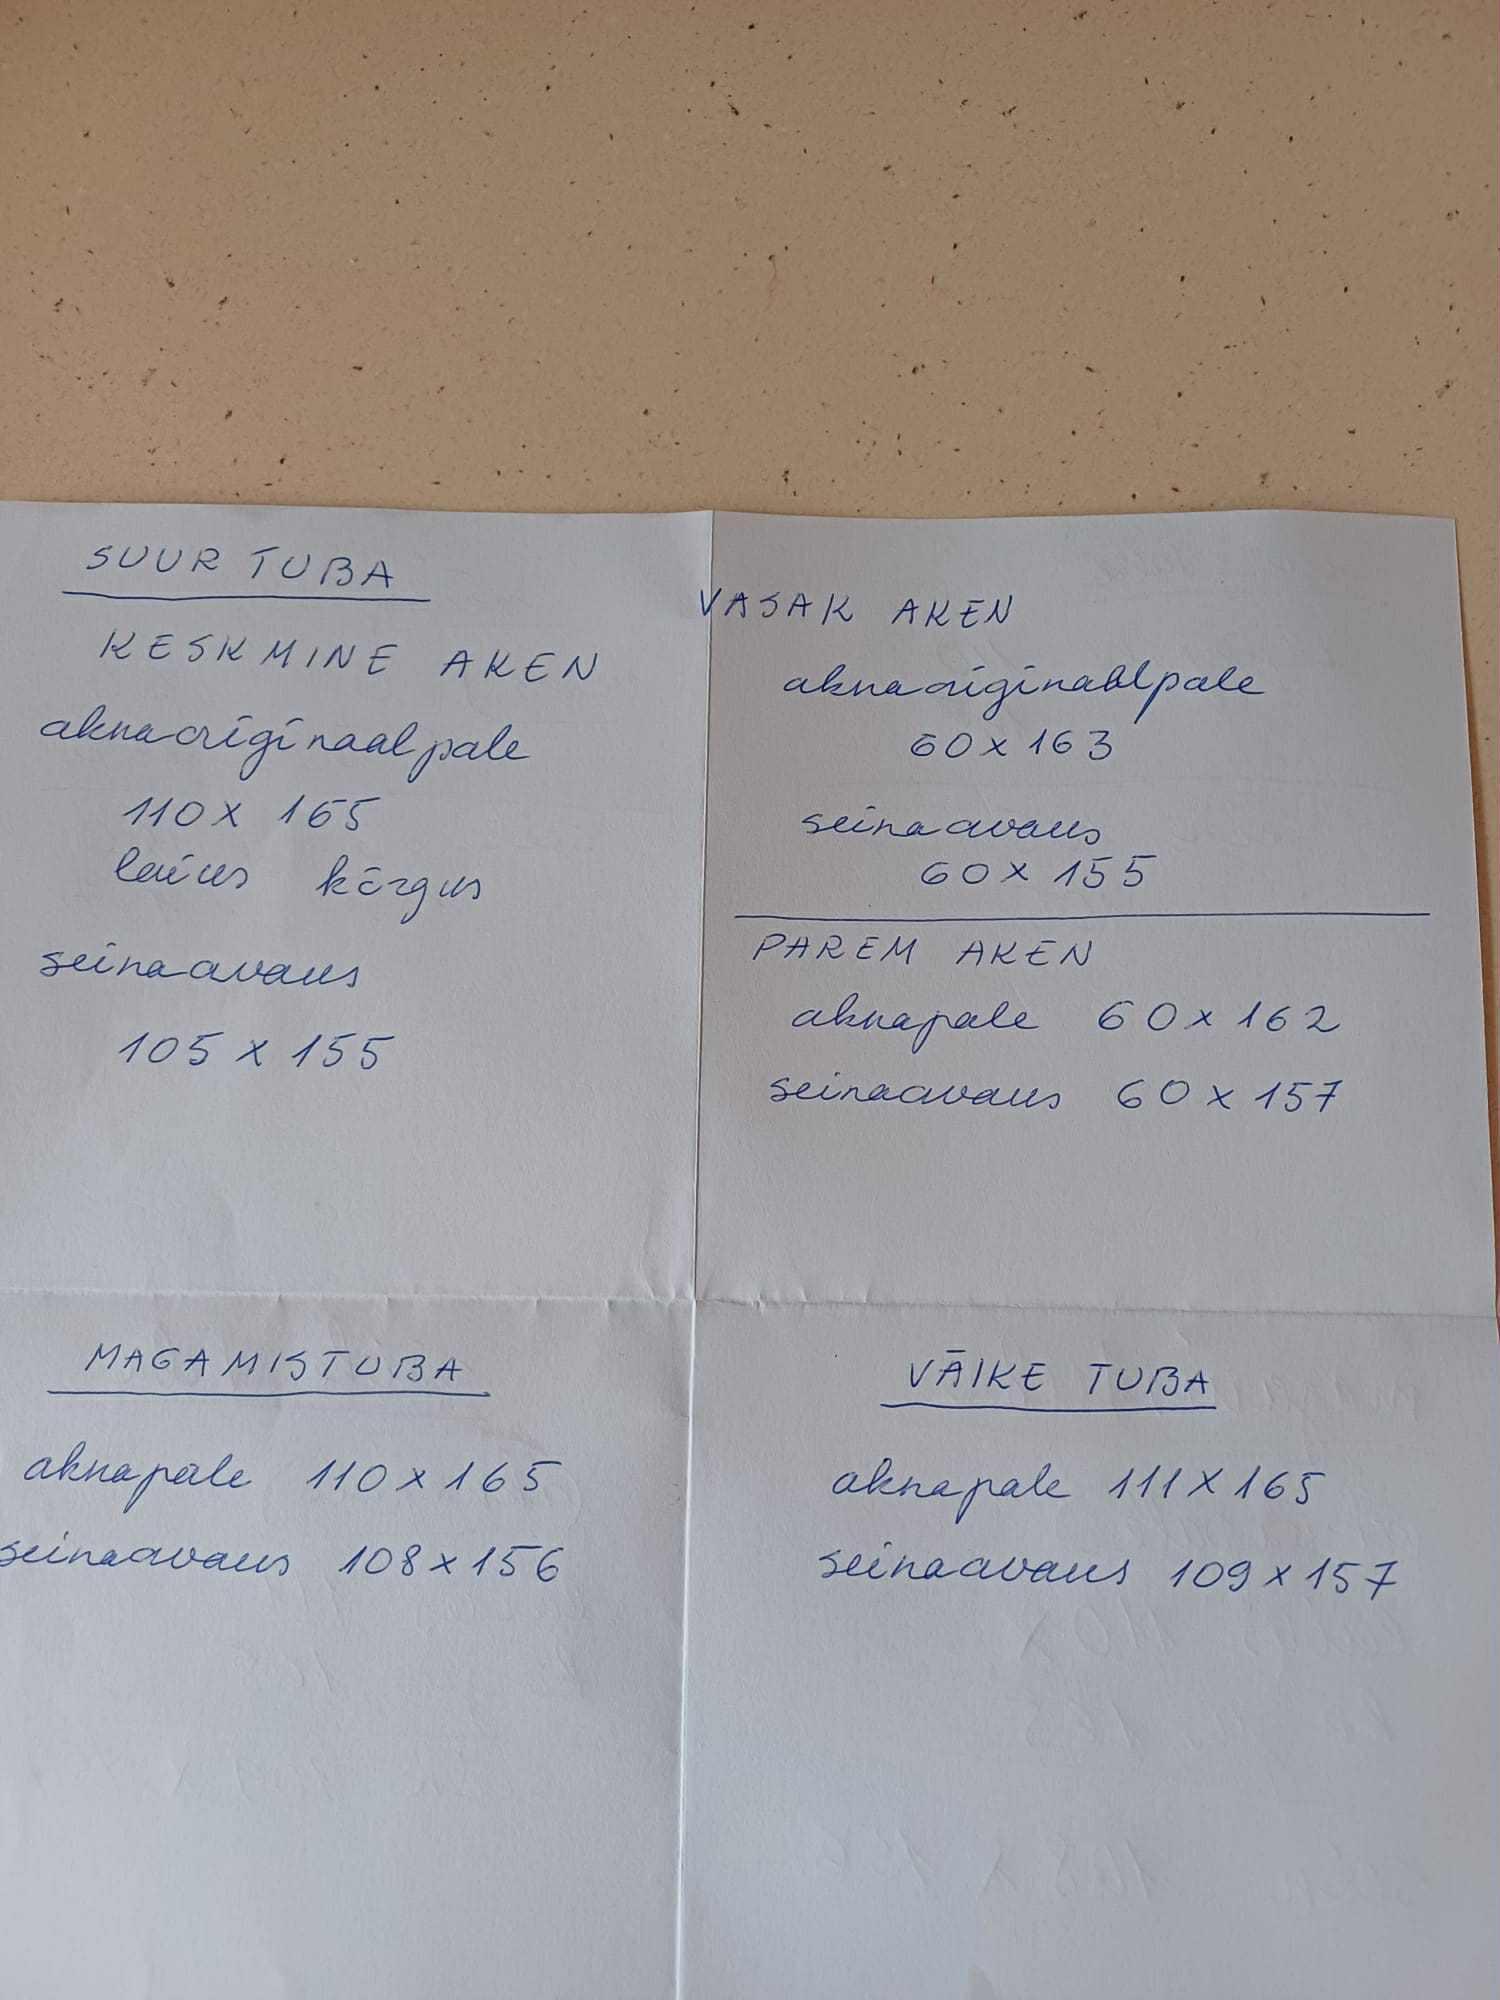 SUUR TUBA
KESKMINE AKEN
aknaoriginaalpale
110 x 165
laius kõrgus
seinaavaus
105 x 155
VASAK AKEN
aknaoriginaalpale
60 x 163
seinaavaus
60 x 155
PAREM AKEN
aknapale 60 x 162
seinaavaus 60 x 157
MAGAMISTUBA
aknapale 110 x 165
seinaavaus 108 x 156
VÄIKE TUBA
aknapale 111 x 165
seinaavaus 109 x 157